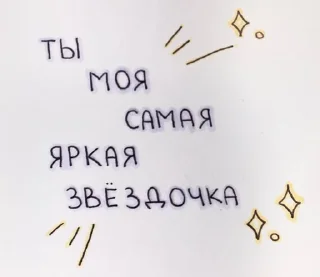 ТЫ
МОЯ
САМАЯ
ЯРКАЯ
ЗВЁЗДОЧКА